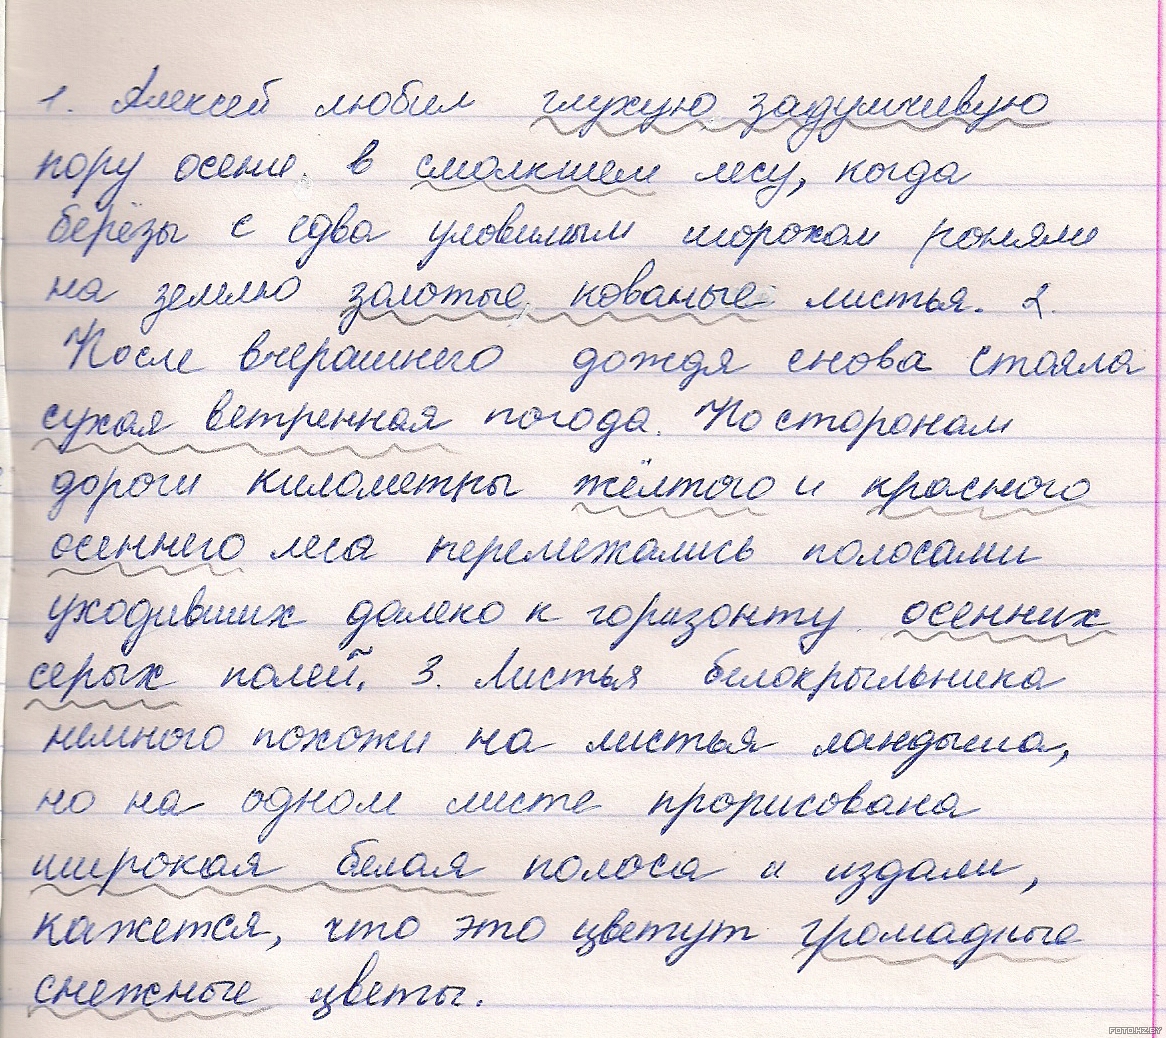 1. Алексей любил глухую задумчивую
пору осени в смолкшем лесу, когда
берёзы с едва уловимым шорохом роняли
на землю золотые, кованые листья. 2.
После вчерашнего дождя снова стояла
сухая ветренная погода. По сторонам
дороги километры жёлтого и красного
осеннего леса перемежались полосами
уходивших далеко к горизонту осенних
серых полей. 3. Листья белокрыльника
немного похожи на листья ландыша,
но на одном листе прорисована
широкая белая полоса и издали,
кажется, что это цветут громадные
снежные цветы.
FOTO.HZ.BY